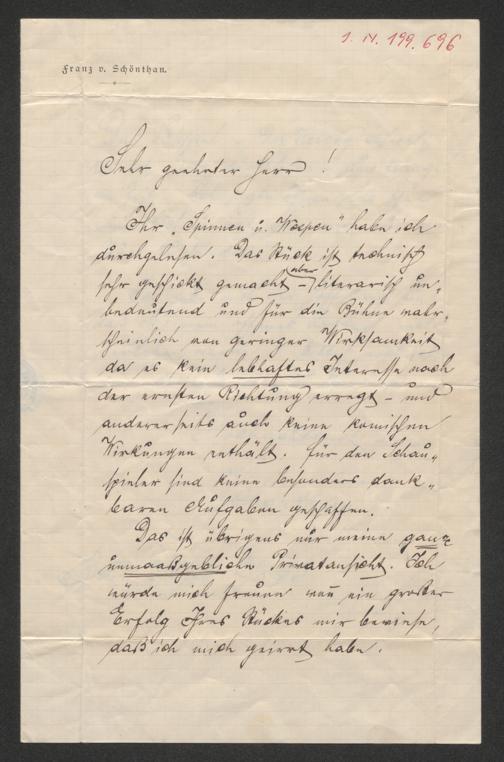 J. N. 199.696
Franz v. Schönthan.
Sehr geehrter Herr!
Ihr „Spinnen u. Wespen" habe ich
durchgelesen. Das Stück ist technisch
sehr geschickt gemacht – aber literarisch un„
bedeutend und für die Bühne wahr„
scheinlich von geringer Wirksamkeit
da es kein lebhaftes Interesse nach
der ernsten Richtung erregt – und
andererseits auch keine komischen
Wirkungen enthält. Für den Schau„
spieler sind keine besonders dank„
baren Aufgaben geschaffen.
Das ist übrigens nur meine ganz
unmaaßgebliche Privatansicht. Ich
würde mich freuen wenn ein großer
Erfolg Ihres Stückes mir bewiese,
daß ich mich geirrt habe.